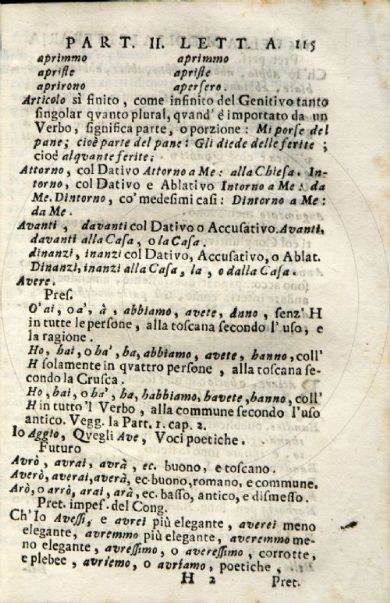 PART. II. LETT. A. 115
aprimmo aprimmo
apriste apriste
aprirono apersero.
Articolo sì finito, come infinito del Genitivo tanto
singolar qvanto plural, qvand' è importato da un
Verbo, significa parte, o porzione: Mi porse del
pane; cioè parte del pane: Gli diede delle ferite;
cioè alqvante ferite.
Attorno, col Dativo Attorno a Me: alla Chiesa. In-
torno, col Dativo e Ablativo Intorno a Me: da
Me. Dintorno, co' medesimi casi: Dintorno a Me:
da Me.
Avanti, davanti col Dativo o Accusativo. Avanti,
davanti alla Casa, o la Casa.
dinanzi, inanzi col Dativo, Accusativo, o Ablat.
Dinanzi, inanzi alla Casa, la, o dalla Casa.
Avere.
Pres.
O' ai, o a', à, abbiamo, avete, ànno, senz' H
in tutte le persone, alla toscana secondo l'uso, e
la ragione.
Ho, hai, o ha', ha, abbiamo, avete, hanno, coll'
H solamente in qvattro persone, alla toscana se-
condo la Crusca.
Ho, hai, o ha', ha, habbiamo, havete, hanno, coll'
H in tutto 'l Verbo, alla commune secondo l'uso
antico. Vegg. la Part. 1. cap. 2.
Io Aggio, Qvegli Ave, Voci poetiche.
Futuro
Avrò, avrai, avrà, ec. buono, e toscano.
Averò, averai, averà, ec. buono, romano, e commune.
Arò, o arrò, arai, arà, ec. basso, antico, e dismesso.
Pret. impef. del Cong.
Ch'Io Avessi, e avrei più elegante, averei meno
elegante, avremmo più elegante, averemmo me-
no elegante, avressimo, o averessimo, corrotte,
e plebee, avriemo, o avriamo, poetiche,
H 2 Pret.